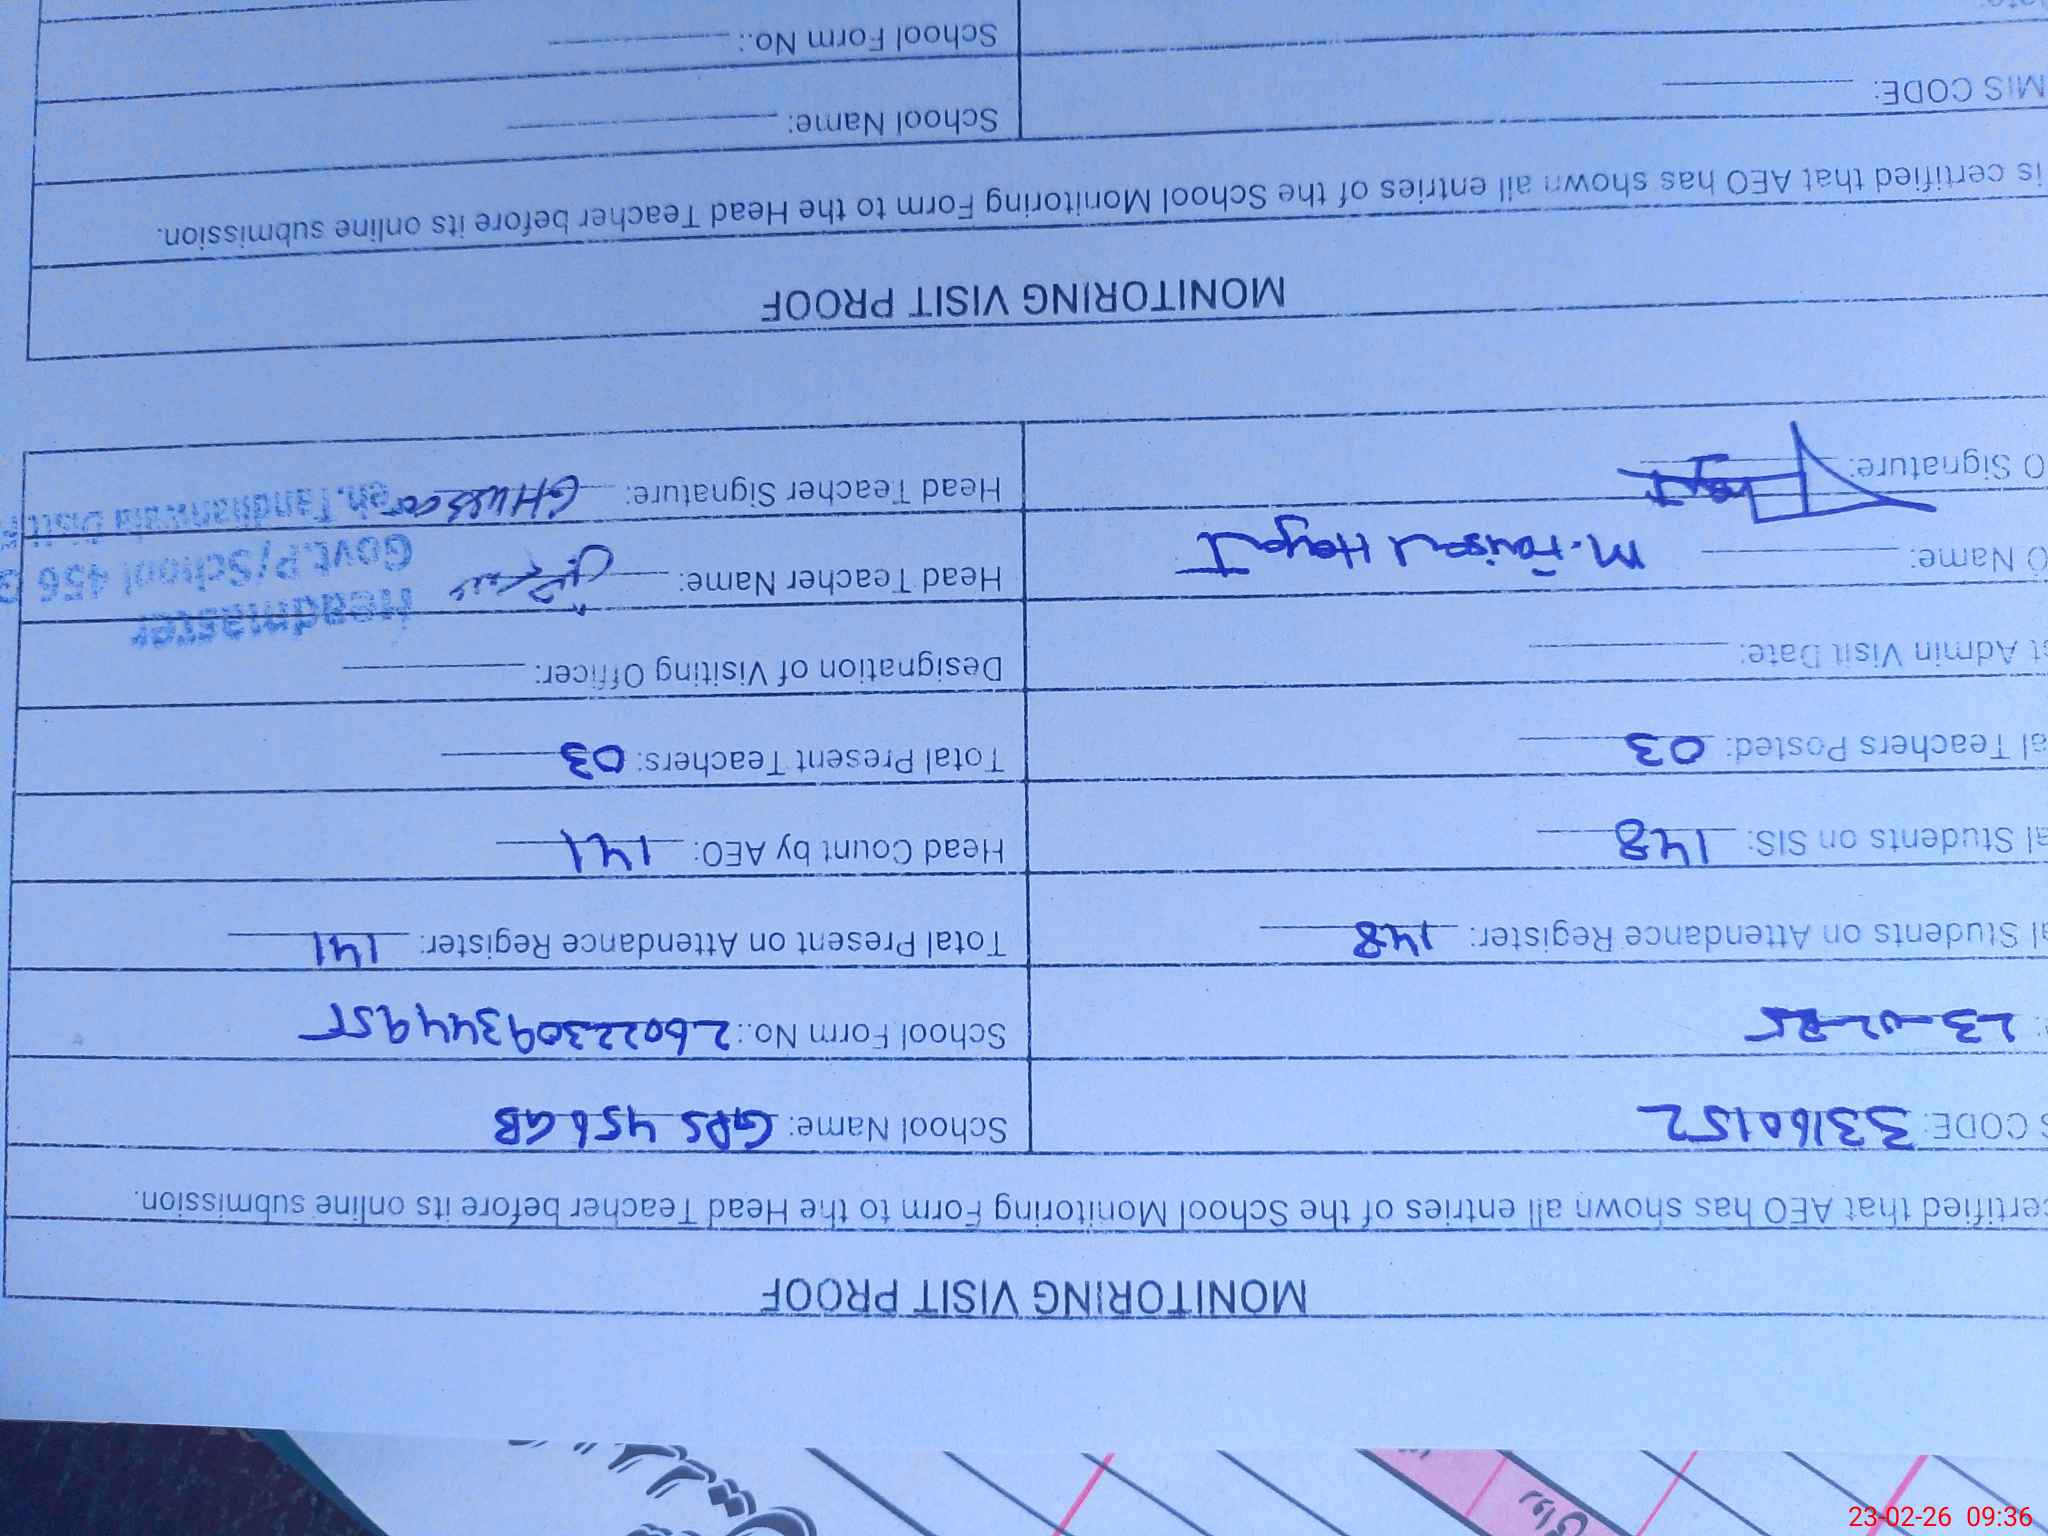 MONITORING VISIT PROOF
certified that AEO has shown all entries of the School Monitoring Form to the Head Teacher before its online submission.
S CODE: 33160152 School Name: GPS 456 GB
School Form No.: 2602230934495
al Students on Attendance Register: 148 Total Present on Attendance Register: 141
al Students on SIS: 148 Head Count by AEO: 141
al Teachers Posted: 03 Total Present Teachers: 03
st Admin Visit Date: Designation of Visiting Officer:
O Name: M. Faisal Hayat Head Teacher Name:
O Signature: Head Teacher Signature:
Headmaster
Govt.P/School 456 G
eh.Tandlianwala Distt.F
MONITORING VISIT PROOF
is certified that AEO has shown all entries of the School Monitoring Form to the Head Teacher before its online submission.
MIS CODE: School Name:
School Form No.:
23-02-26 09:36